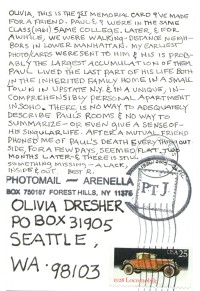 OLIVIA, THIS IS THE 1ST MEMORIAL CARD I'VE MADE
FOR A FRIEND. PAUL E & I WERE IN THE SAME
CLASS (1961) SAME COLLEGE. LATER, & FOR
AWHILE, WE WERE WALKING-DISTANCE NEIGH-
BORS IN LOWER MANHATTAN. MY EARLIEST
PHOTOCARDS WERE SENT TO HIM & HIS IS PROB-
ABLY THE LARGEST ACCUMULATION OF THEM.
PAUL LIVED THE LAST PART OF HIS LIFE BOTH
IN THE INHERITED FAMILY HOME IN A SMALL
TOWN IN UPSTATE N.Y. & IN A UNIQUE, IN-
COMPREHENSIBLY PERSONAL APARTMENT
IN SOHO. THERE IS NO WAY TO ADEQUATELY
DESCRIBE PAUL'S ROOMS & NO WAY TO
SUMMARIZE - OR EVEN GIVE A SENSE OF -
HIS SINGULAR LIFE. AFTER A MUTUAL FRIEND
PHONED ME OF PAUL'S DEATH EVERYTHING OUT
SIDE, FOR A FEW DAYS, SEEMED FLAT. TWO
MONTHS LATER - & THERE IS STILL
SOMETHING MISSING - A LACK,
INSIDE & OUT. BEST R.
PHOTOMAIL — ARENELLA
BOX 750187 FOREST HILLS, NY 11375
OLIVIA DRESHER
PO BOX 31905
SEATTLE,
WA. 98103
APT J
USA 25
1928 Locomobile